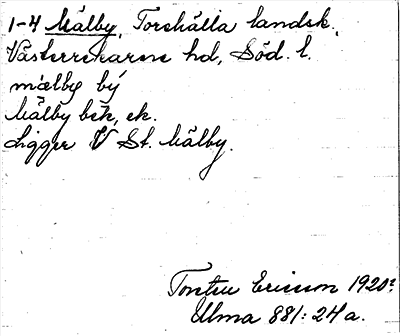 1-4 Mälby, Torshälla landsk.,
Västerrekarne hd, Söd. l.
mælby bý
Mälby bek, ek.
Ligger V St. Mälby.
Torsten Ericsson 1920?
Ulma 881:24a.